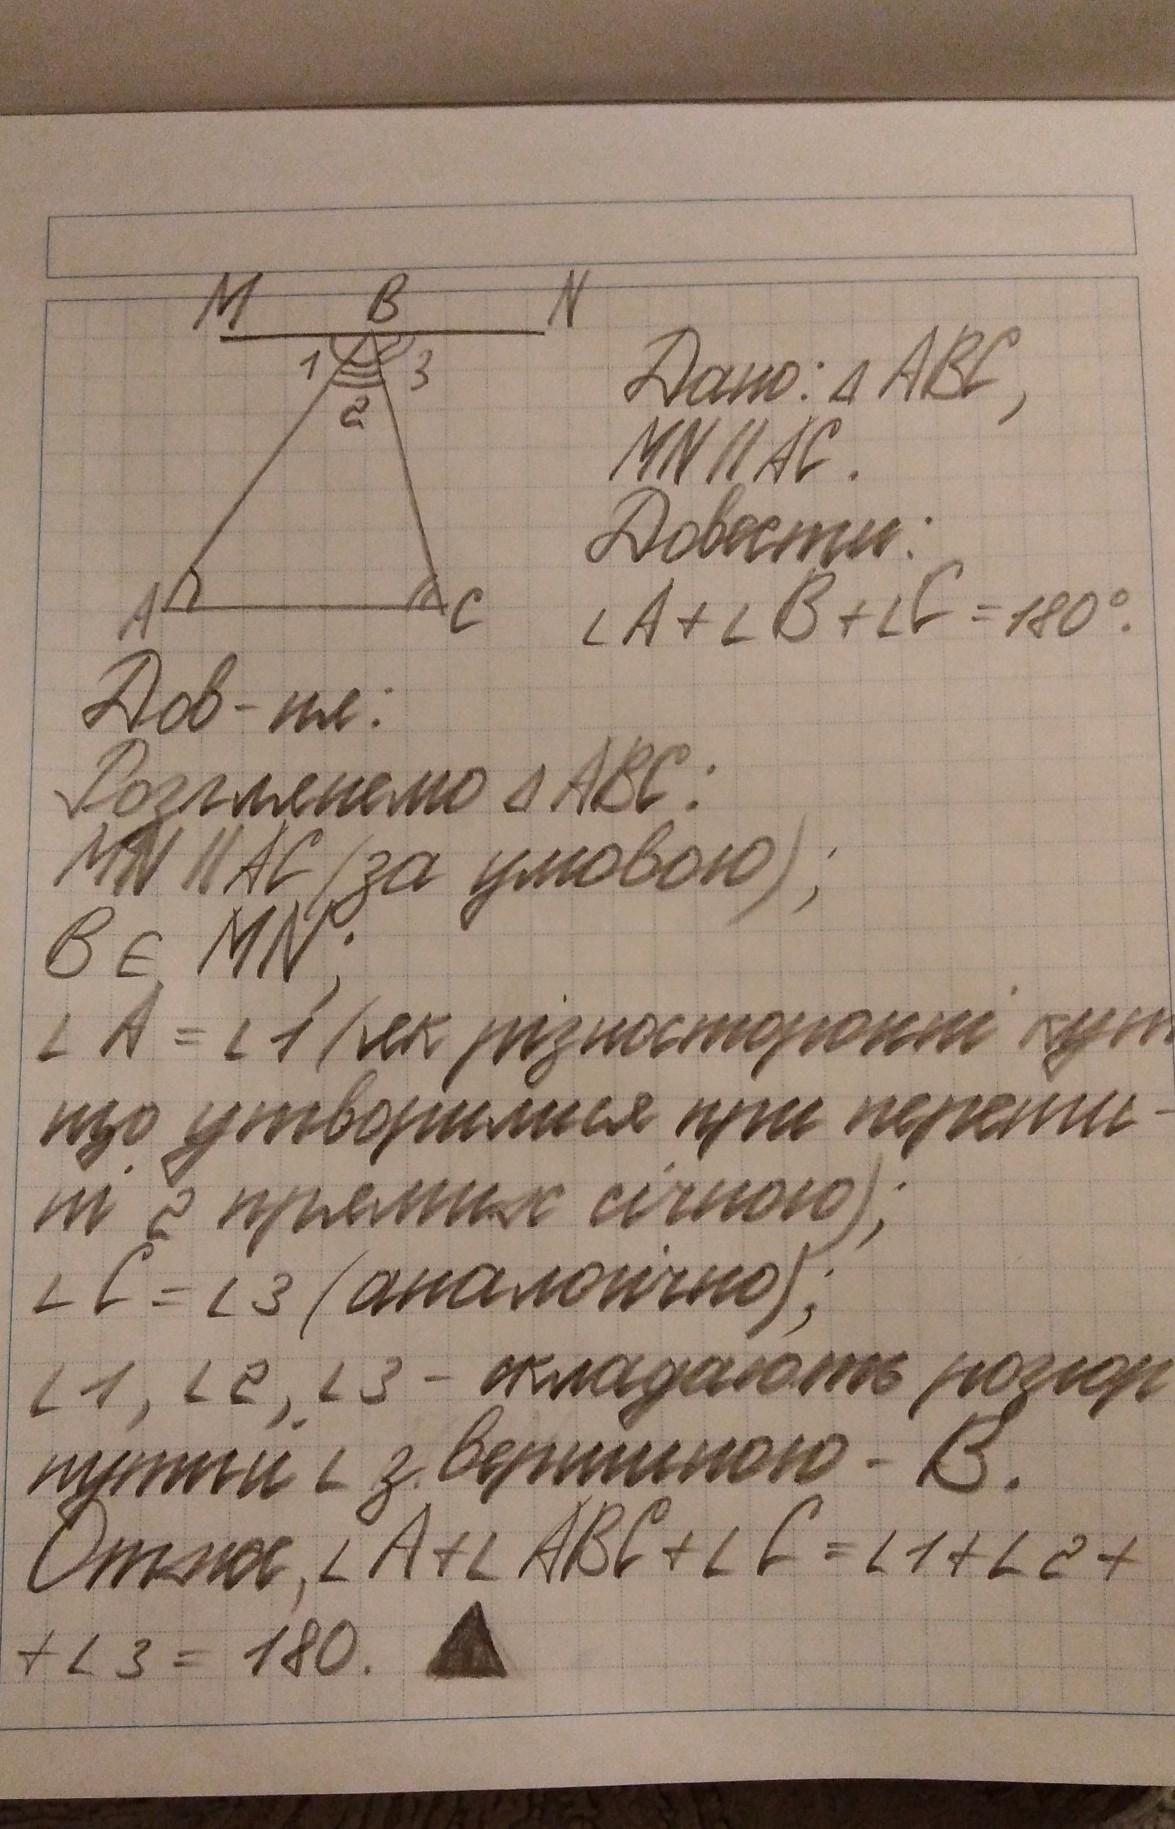 M B N
1 3
2
A C
Дано: △ABC,
MN || AC.
Довести:
∠A + ∠B + ∠C = 180°.
Дов-ня:
Розглянемо △ABC:
MN || AC (за умовою);
B ∈ MN;
∠A = ∠1 (як різносторонні кут
що утворилися при перети-
ні 2 прямих січною);
∠C = ∠3 (аналоічно);
∠1, ∠2, ∠3 - складають розгор
нутий ∠ з вершиною - B.
Отже, ∠A + ∠ABC + ∠C = ∠1 + ∠2 +
+ ∠3 = 180. ▲